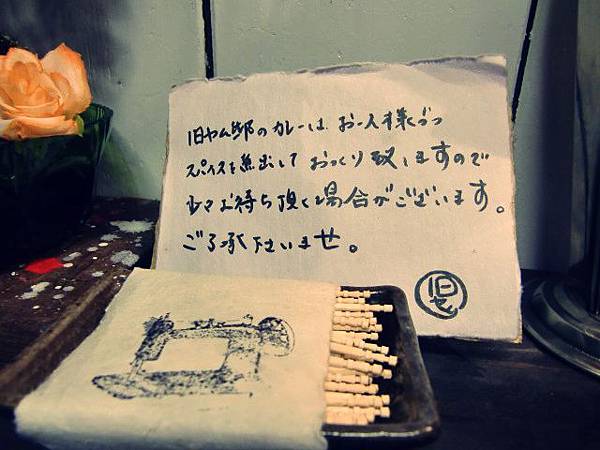 旧ヤム邸のカレーは、お一人様づつ
スパイスを煎出して おつくり致しますので
少々お待ち頂く場合がございます。
ご了承下さいませ。
旧ヤム